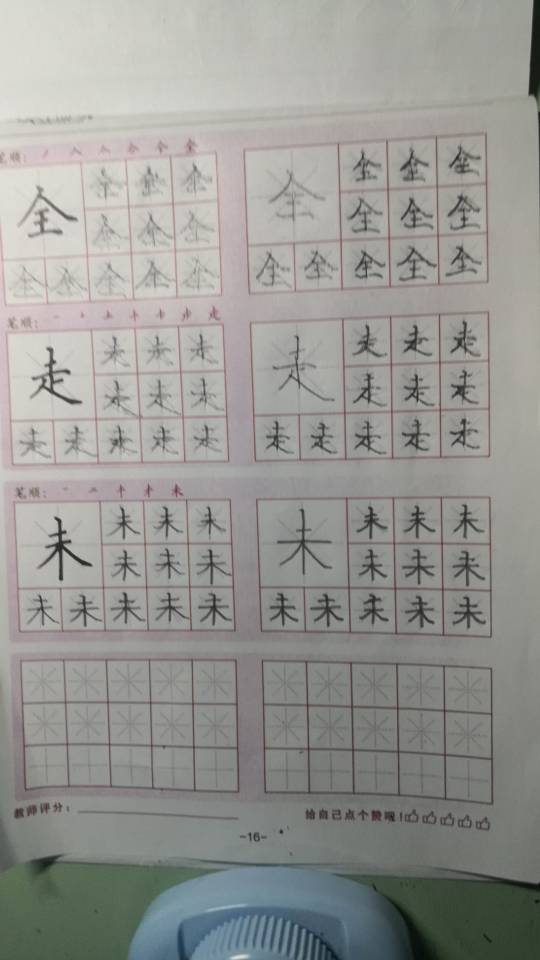 笔顺：丿 人 亼 仐 仝 全
全 全 全 全 全 全 全 全
全 全 全 全 全 全 全
全 全 全 全 全 全 全 全 全 全
笔顺：一 十 土 走
走 走 走 走 走 走 走 走
走 走 走 走 走 走
走 走 走 走 走 走 走 走 走 走
笔顺：一 二 十 才 未
未 未 未 未 未 未 未 未
未 未 未 未 未 未
未 未 未 未 未 未 未 未 未 未
教师评分：
给自己点个赞呢！
-16-